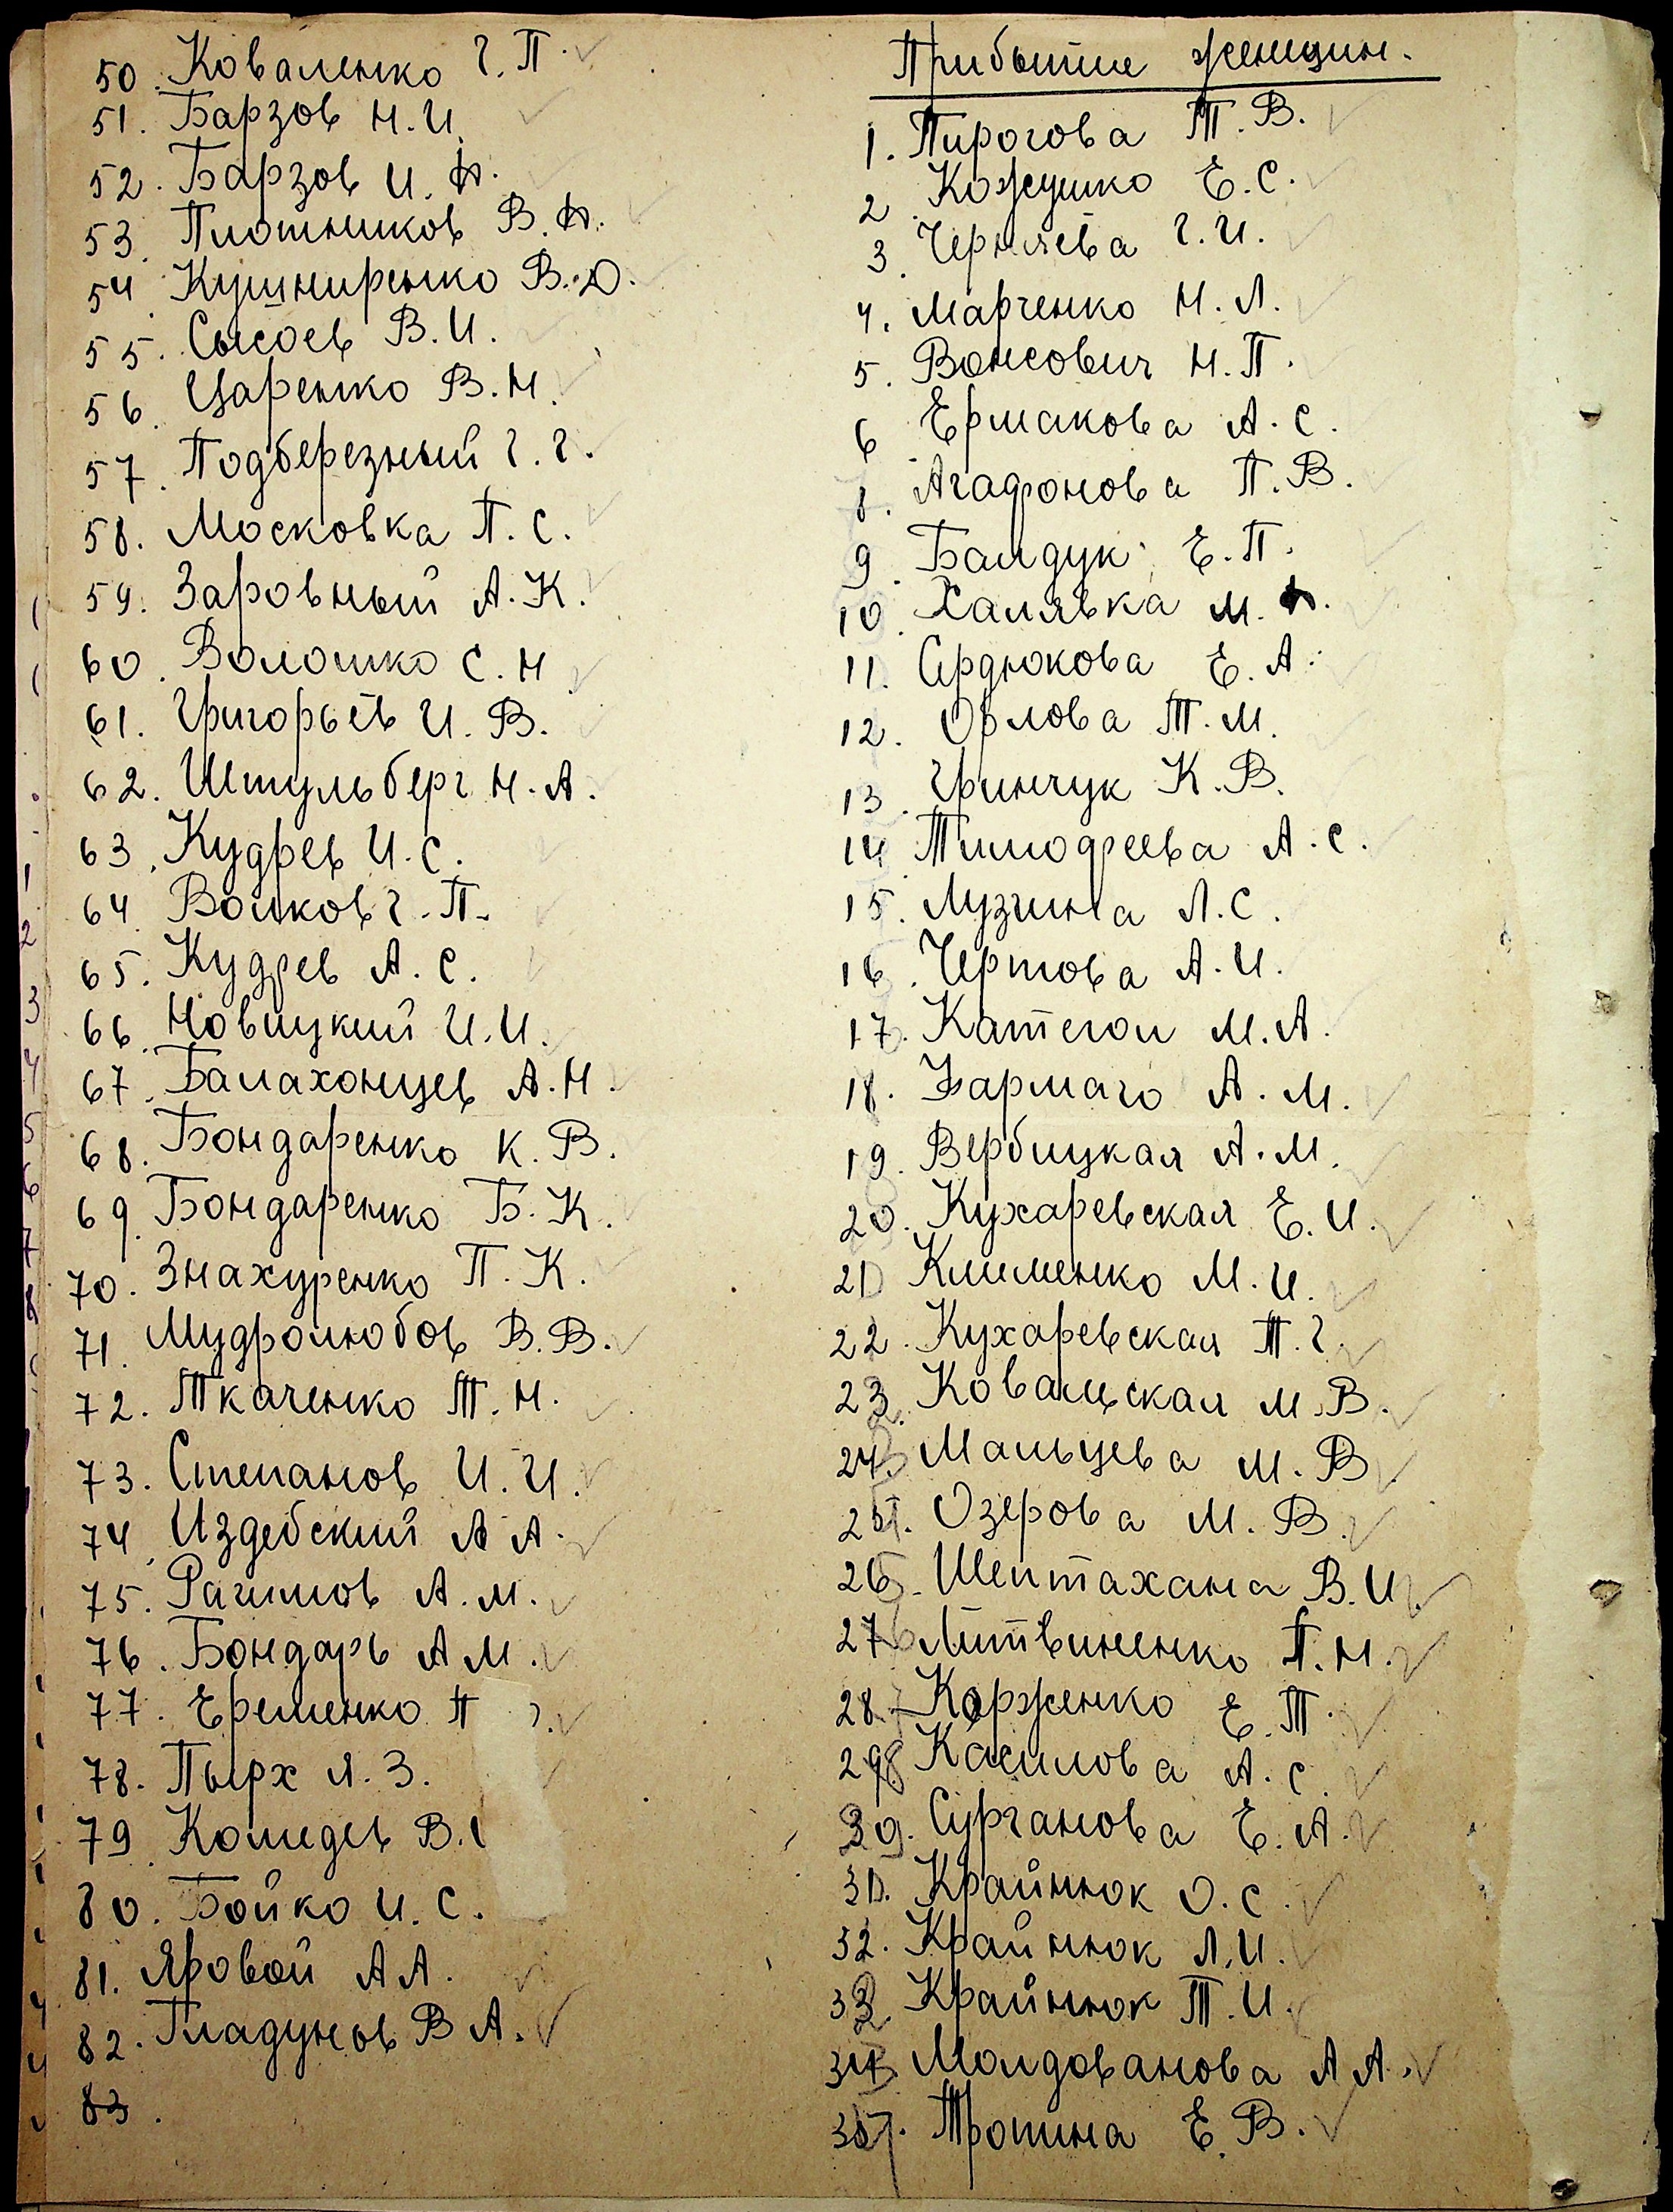 50. Коваленко Г.П.
51. Барзов Н.И.
52. Барзов И.Н.
53. Плотников В.Н.
54. Кушниренко В.Д.
55. Сысоев В.И.
56. Царенко В.Н.
57. Подберезный Г.Г.
58. Московка П.С.
59. Заровный А.К.
60. Волошко С.Н.
61. Григорьев И.В.
62. Штульберг Н.А.
63. Кудрев И.С.
64. Волков Г.П.
65. Кудрев А.С.
66. Новицкий И.И.
67. Балахонцев А.Н.
68. Бондаренко К.В.
69. Бондаренко Б.К.
70. Знахуренко П.К.
71. Мудролюбов В.В.
72. Ткаченко Т.Н.
73. Степанов И.И.
74. Издебский А А.
75. Рагимов А.М.
76. Бондарь А М.
77. Еременко П
78. Пырх Я.З.
79. Коледев В.
80. Бойко И.С.
81. Яровой А А.
82. Гладунов В А.
83.
Прибытие женщин.
1. Пирогова Т.В.
2. Кожушко Е.С.
3. Черняева Г.И.
4. Марченко Н.Л.
5. Вонсович Н.П.
6 Ермакова А.С.
8. Агафонова П.В.
9. Балдук Е.П.
10. Халявка М.
11. Сердюкова Е.А.
12. Орлова Т.М.
13. Гринчук К.В.
14 Тимофеева А.С.
15. Лузгина Л.С.
16. Чертова А.И.
17. Категол М.А.
18. Хармаго А.М.
19. Вербицкая А.М.
20. Кухаревская Е.И.
21 Клименко М.И.
22. Кухаревская Т.Г.
23. Ковальская М.В.
24. Мальцева М.В.
25. Озерова М.В.
26. Шептахана В.И.
27 Литвиненко П.Н.
28 Корженко Е.Т.
29 Касилова А.С.
30. Сурганова Е.А.
31. Крайнюк О.С.
32. Крайнюк Л.И.
33. Крайнюк Т.И.
34 Молдованова А А.
35. Тропина Е.В.